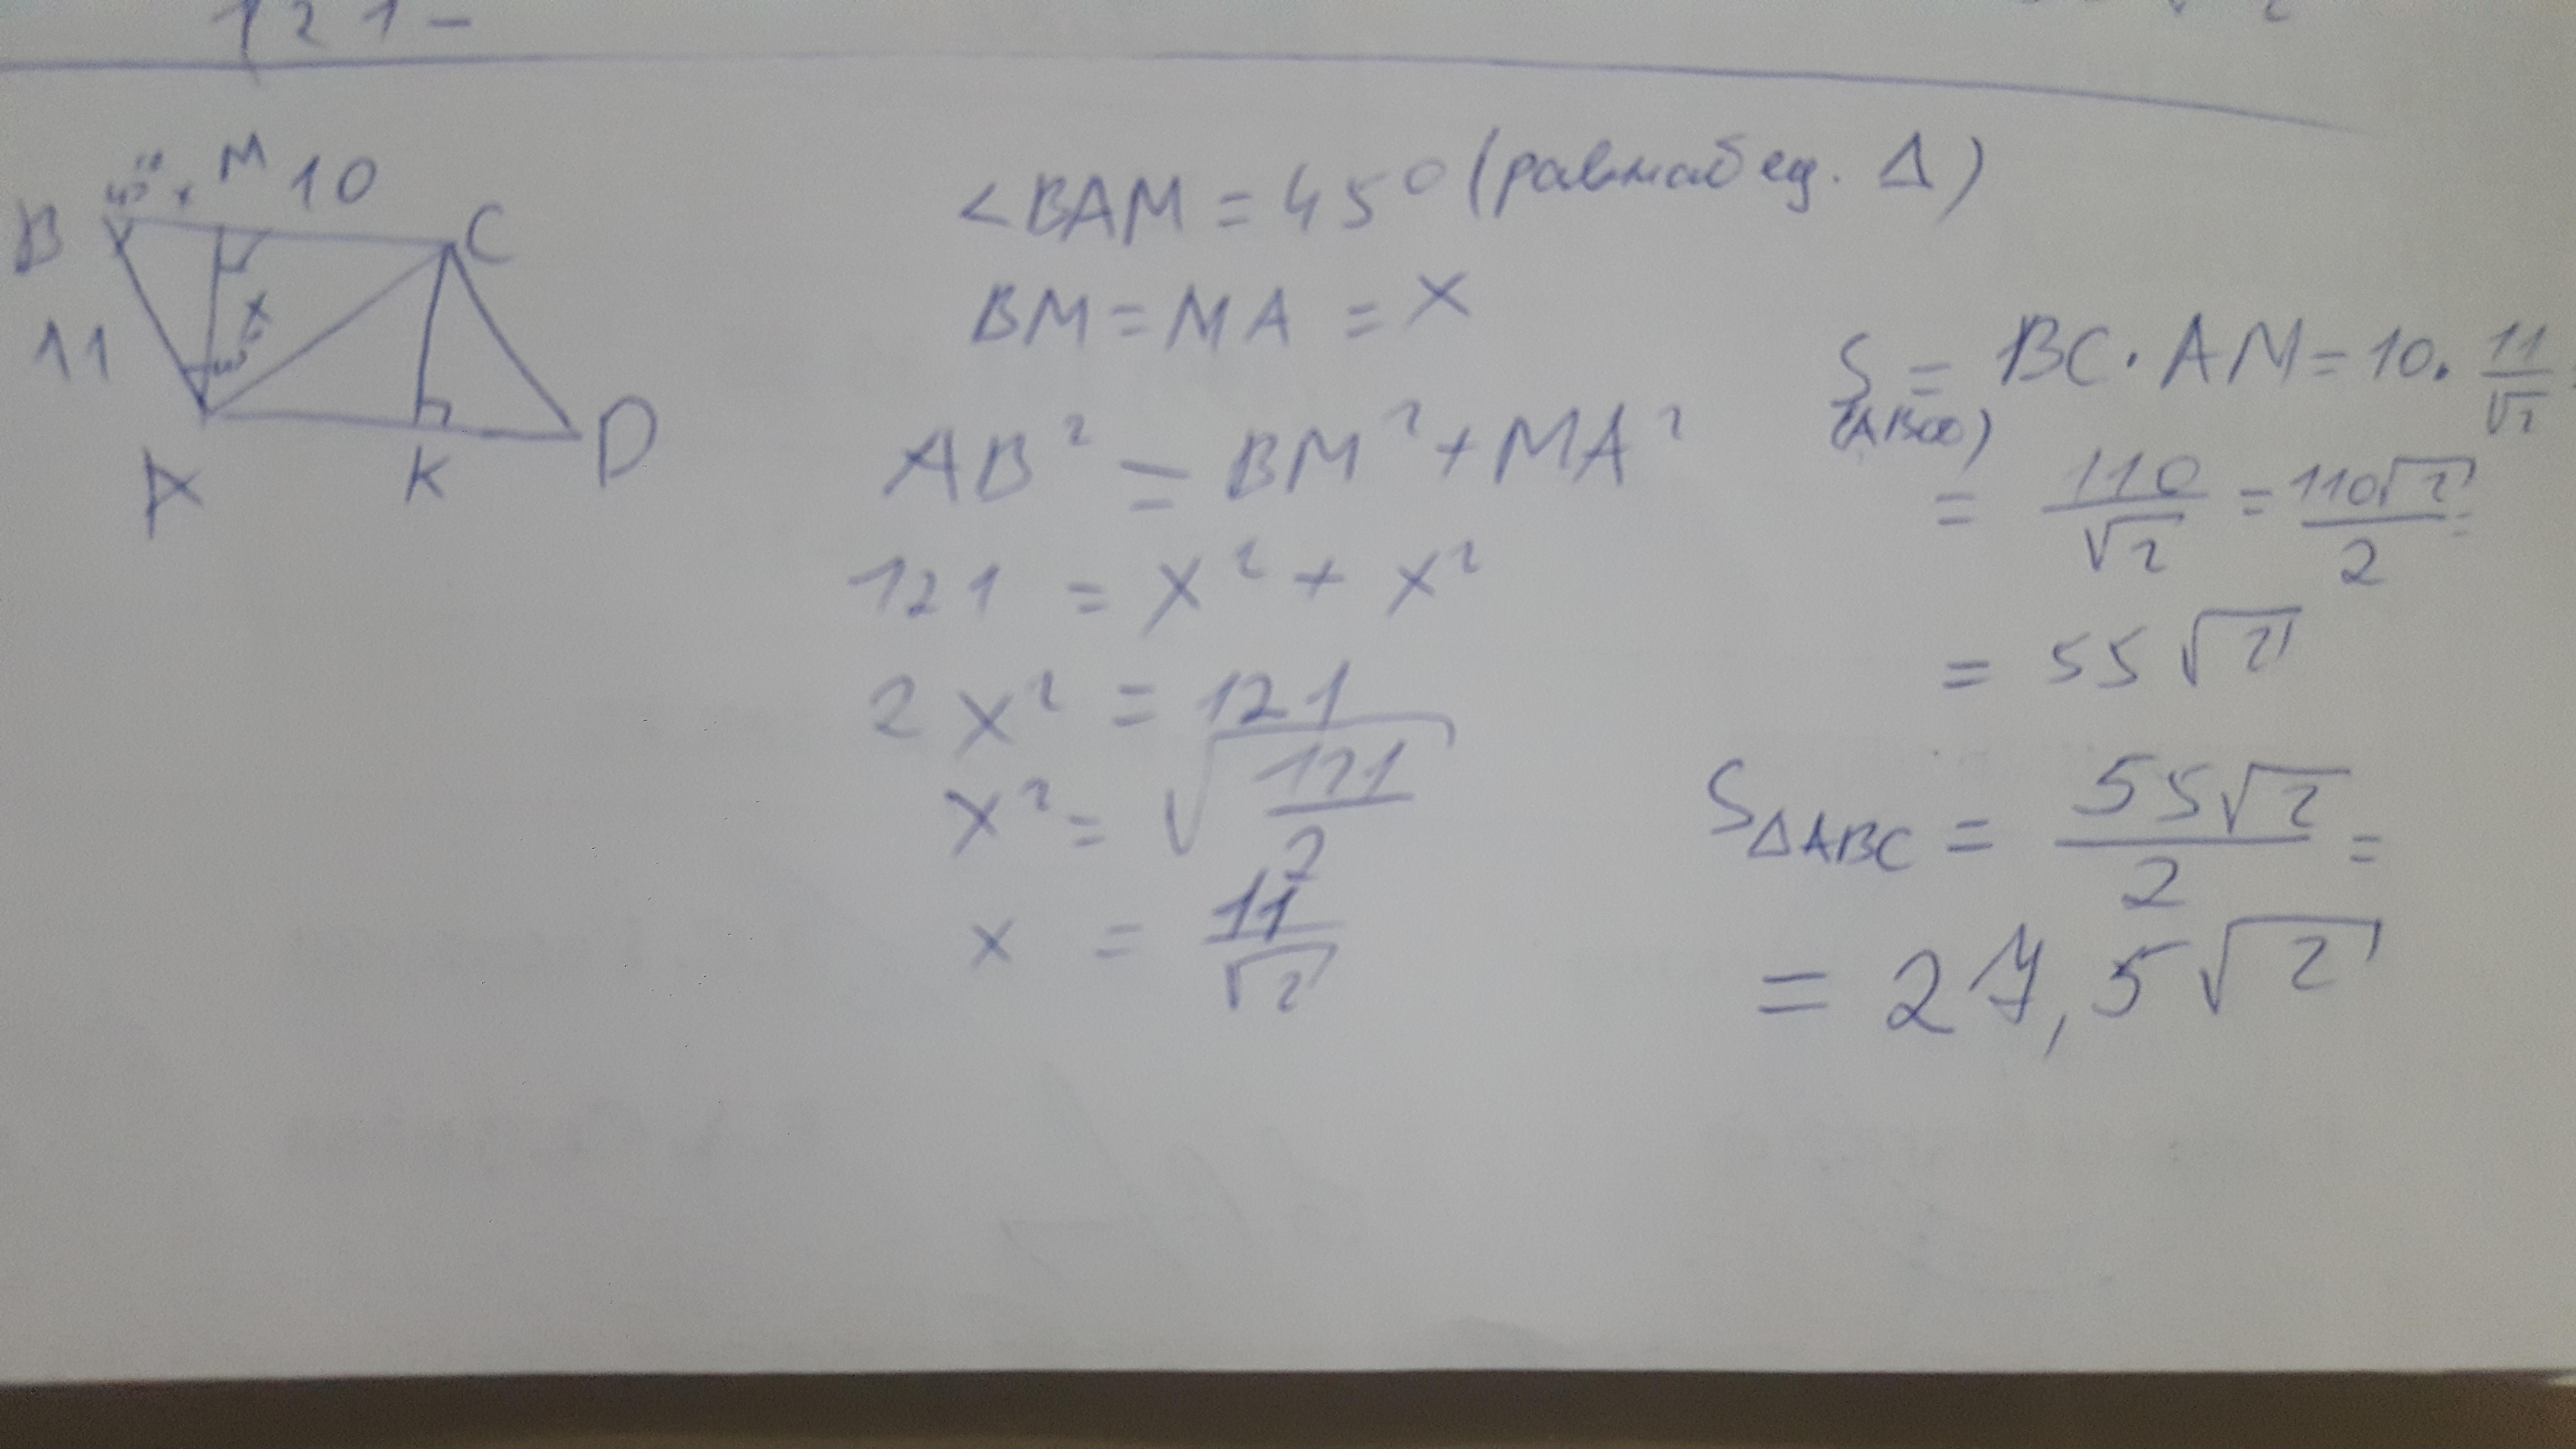 121-
B 45° x M 10 C
11 x
A K D
<BAM = 45° (равноб ед. Δ)
BM = MA = x
AB² = BM² + MA²
121 = x² + x²
2x² = 121
x² = √(121/2)
x = 11/√2
S(ABCD) = BC · AM = 10 · 11/√2 =
= 110/√2 = 110√2/2 =
= 55√2
SΔABC = 55√2/2 =
= 27,5√2